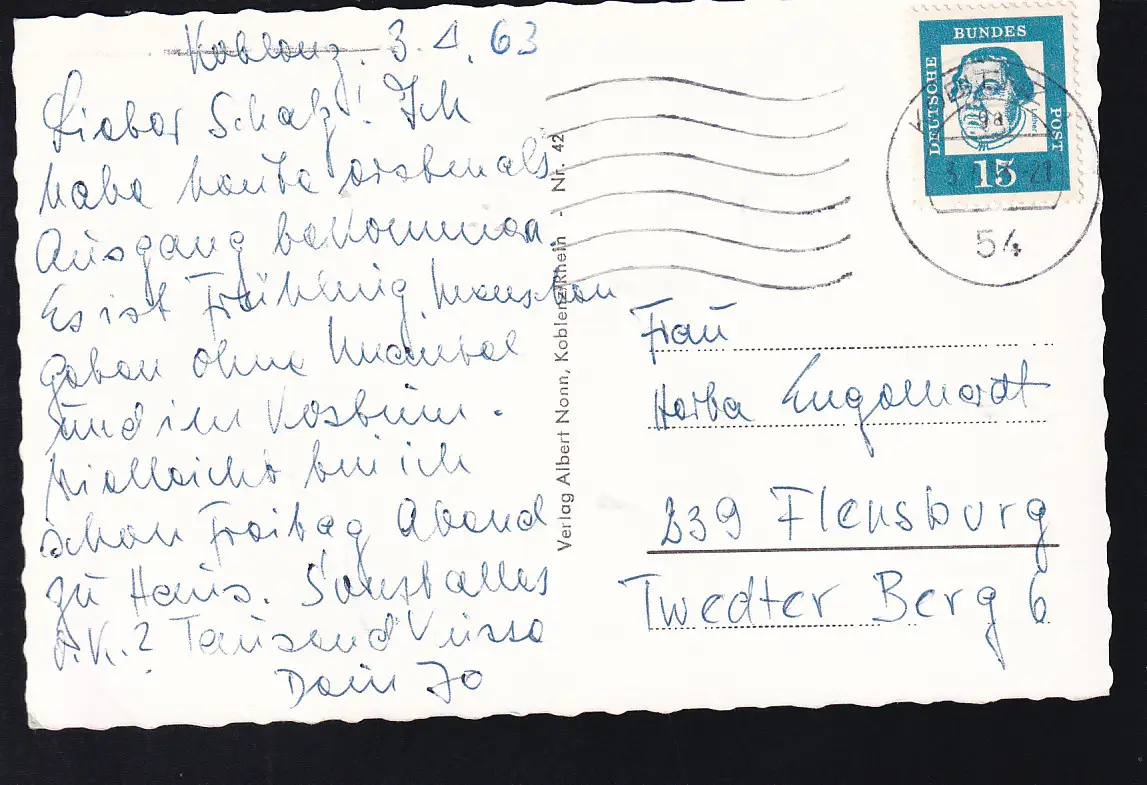 Koblenz. 3.4.63
Lieber Schatz! Ich
habe heute erstmals
Ausgang bekommen
Es ist Frühling, Menschen
gehen ohne Mantel
und im Kostüm.
Vielleicht bin ich
schon Freitag Abend
zu Haus. Sonst alles
O.K.? Tausend Küsse
Dein Jo
Verlag Albert Nonn, Koblenz/Rhein - Nr. 42
DEUTSCHE
BUNDES
POST
Luther
15
9a
54
Frau
Herba Engelhardt
239 Flensburg
Twedter Berg 6